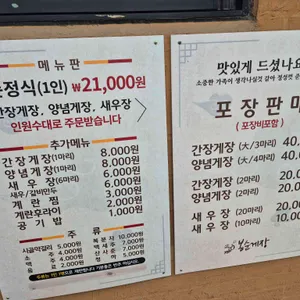 메뉴판
정식(1인) ₩21,000원
간장게장, 양념게장, 새우장
인원수대로 주문받습니다
추가메뉴
간장게장(1마리) 8,000원
양념게장(1마리) 8,000원
새우장(6마리) 6,000원
계란찜 2,000원
계란후라이 1,000원
공기밥 1,000원
주류
5,000원
소주 4,000원
맥주 4,000원
음료 2,000원
복분자 10,000원
맛있게 드셨나요
소중한 가족이 생각나실것 같아 정성껏
포장판매
(포장비포함)
간장게장 (大/3마리) 40,
양념게장 (大/4마리) 40.
간장게장 (2마리) 20.0
양념게장 (2마리) 20.0
새우장 (20마리) 20.0
새우장 (10마리) 10.00